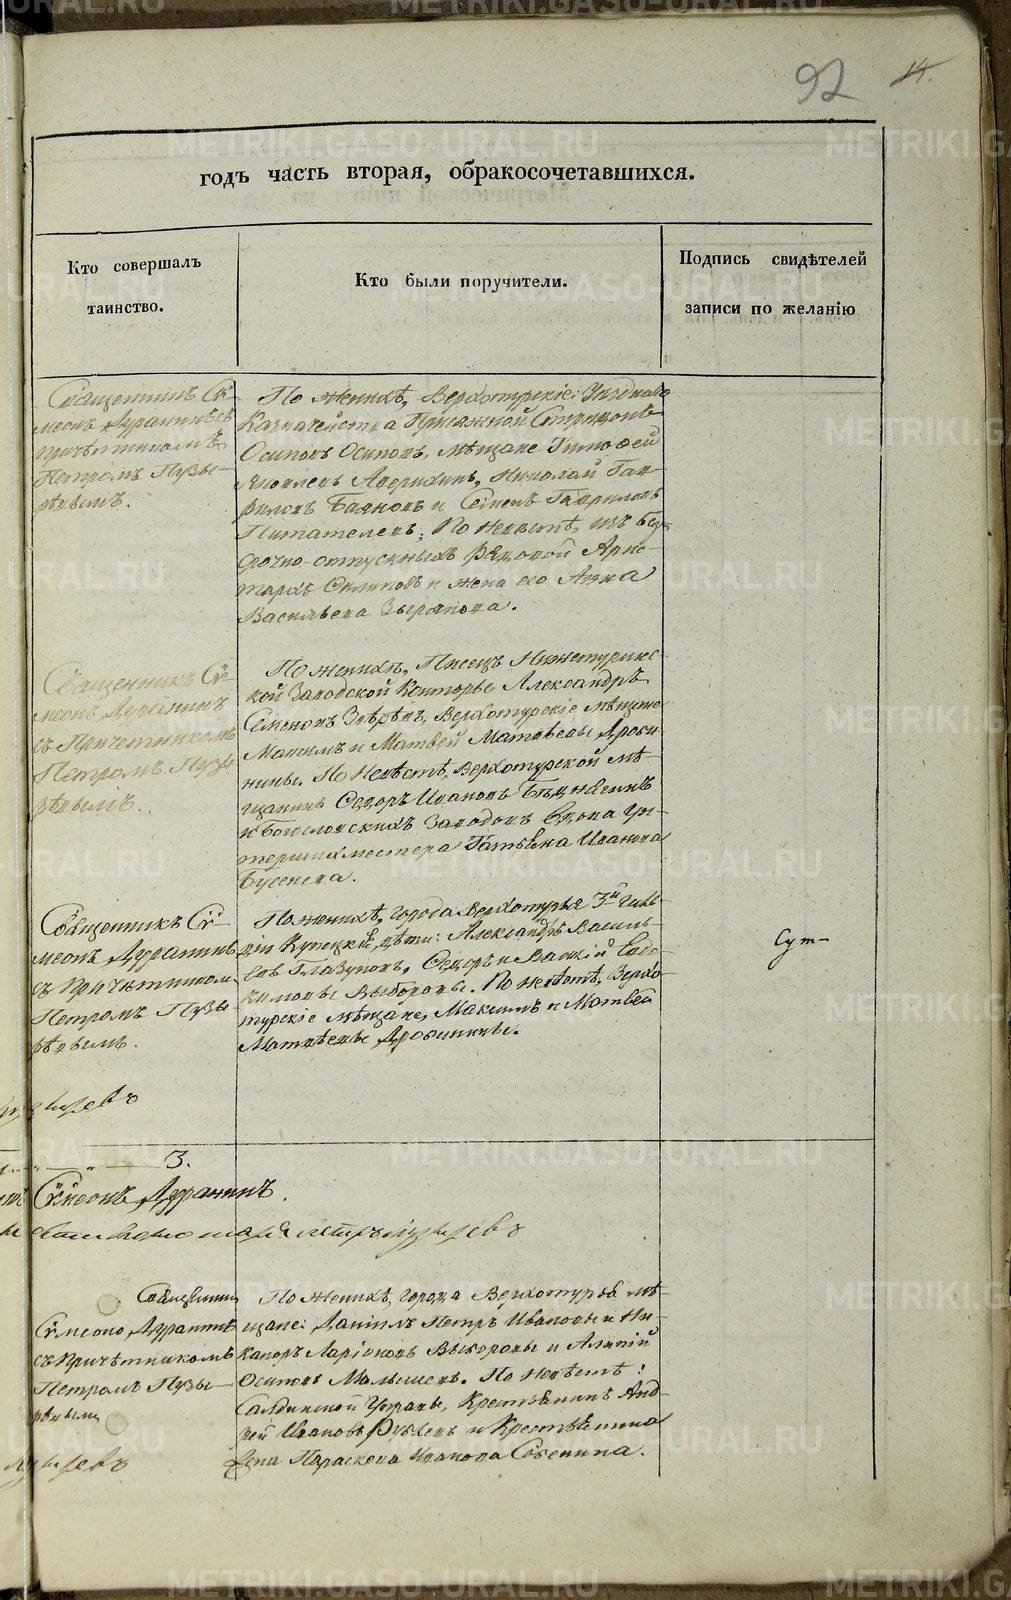 92 14.
годъ часть вторая, обракосочетавшихся.
Кто совершалъ
таинство.
Кто были поручители.
Подпись свидѣтелей
записи по желанію
Священникъ Сѵ-
меонъ Дуранинъ съ
причетникомъ
Петромъ Пузы-
рѣвымъ.
По женихѣ, Верхотурскіе: Уѣзднаго
Казначейства Присяжной
Осиповъ Осиповъ, мѣщане Тимофей
Яковлевъ Аверкинъ, Николай Гав-
риловъ Баяновъ и Семенъ Гавриловъ
Питателевъ; По невѣстѣ, изъ без-
срочно-отпускныхъ рядовой Арис-
тархъ и жена его Анна
Васильева Зырянова.
Священникъ Сѵ-
меонъ Дуранинъ
съ Причетникомъ
Петромъ Пузы-
рѣвымъ.
По женихѣ, Писецъ Нижнетурин-
ской Заводской Конторы Александръ
Семеновъ Звѣревъ, Верхотурскіе мѣщане
Максимъ и Матвей Матвѣевы Дроби-
нины. По Невѣстѣ, Верхотурской мѣ-
щанинъ Федоръ Ивановъ
и Богословскихъ Заводовъ Вдова Ун-
Татьяна Иванова
Бусенева.
Священникъ Сѵ-
меонъ Дуранинъ
съ Причѣтникомъ
Петромъ Пузы-
рѣвымъ.
По женихѣ, города Верхотурья 3й Гиль-
діи Купецкій дѣти: Александръ Василь-
евъ Глазуновъ, Федоръ и Василій Евдо-
кимовы Выборовы. По невѣстѣ, Верхо-
турскіе мѣщане, Максимъ и Матвей
Матвѣевы Дробинины.
3.
Сѵмеонъ Дуранинъ.
Петръ Пузыревъ
Священникъ
Сѵмеонъ Дуранинъ
съ Причѣтникомъ
Петромъ Пузы-
рѣвымъ
По женихѣ, города Верхотурья мѣ-
щане: Даніилъ Петръ Ивановы и Ни-
каноръ Ларіоновъ Выборовы и Алипій
Осиповъ Малышевъ. По Невѣстѣ:
Салдинской Управы, Крестьянинъ Анд-
рей Ивановъ и Крестьянина
жена Параскева Иванова